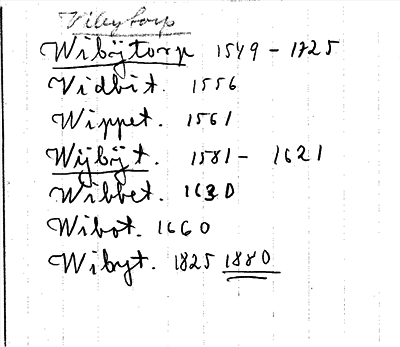 Wibÿtorp 1549 - 1725
Vidbit. 1556
Wippet. 1561
Wijbÿt. 1581 - 1621
Wibbet. 1630
Wibot. 1660
Wibyt. 1825 1880